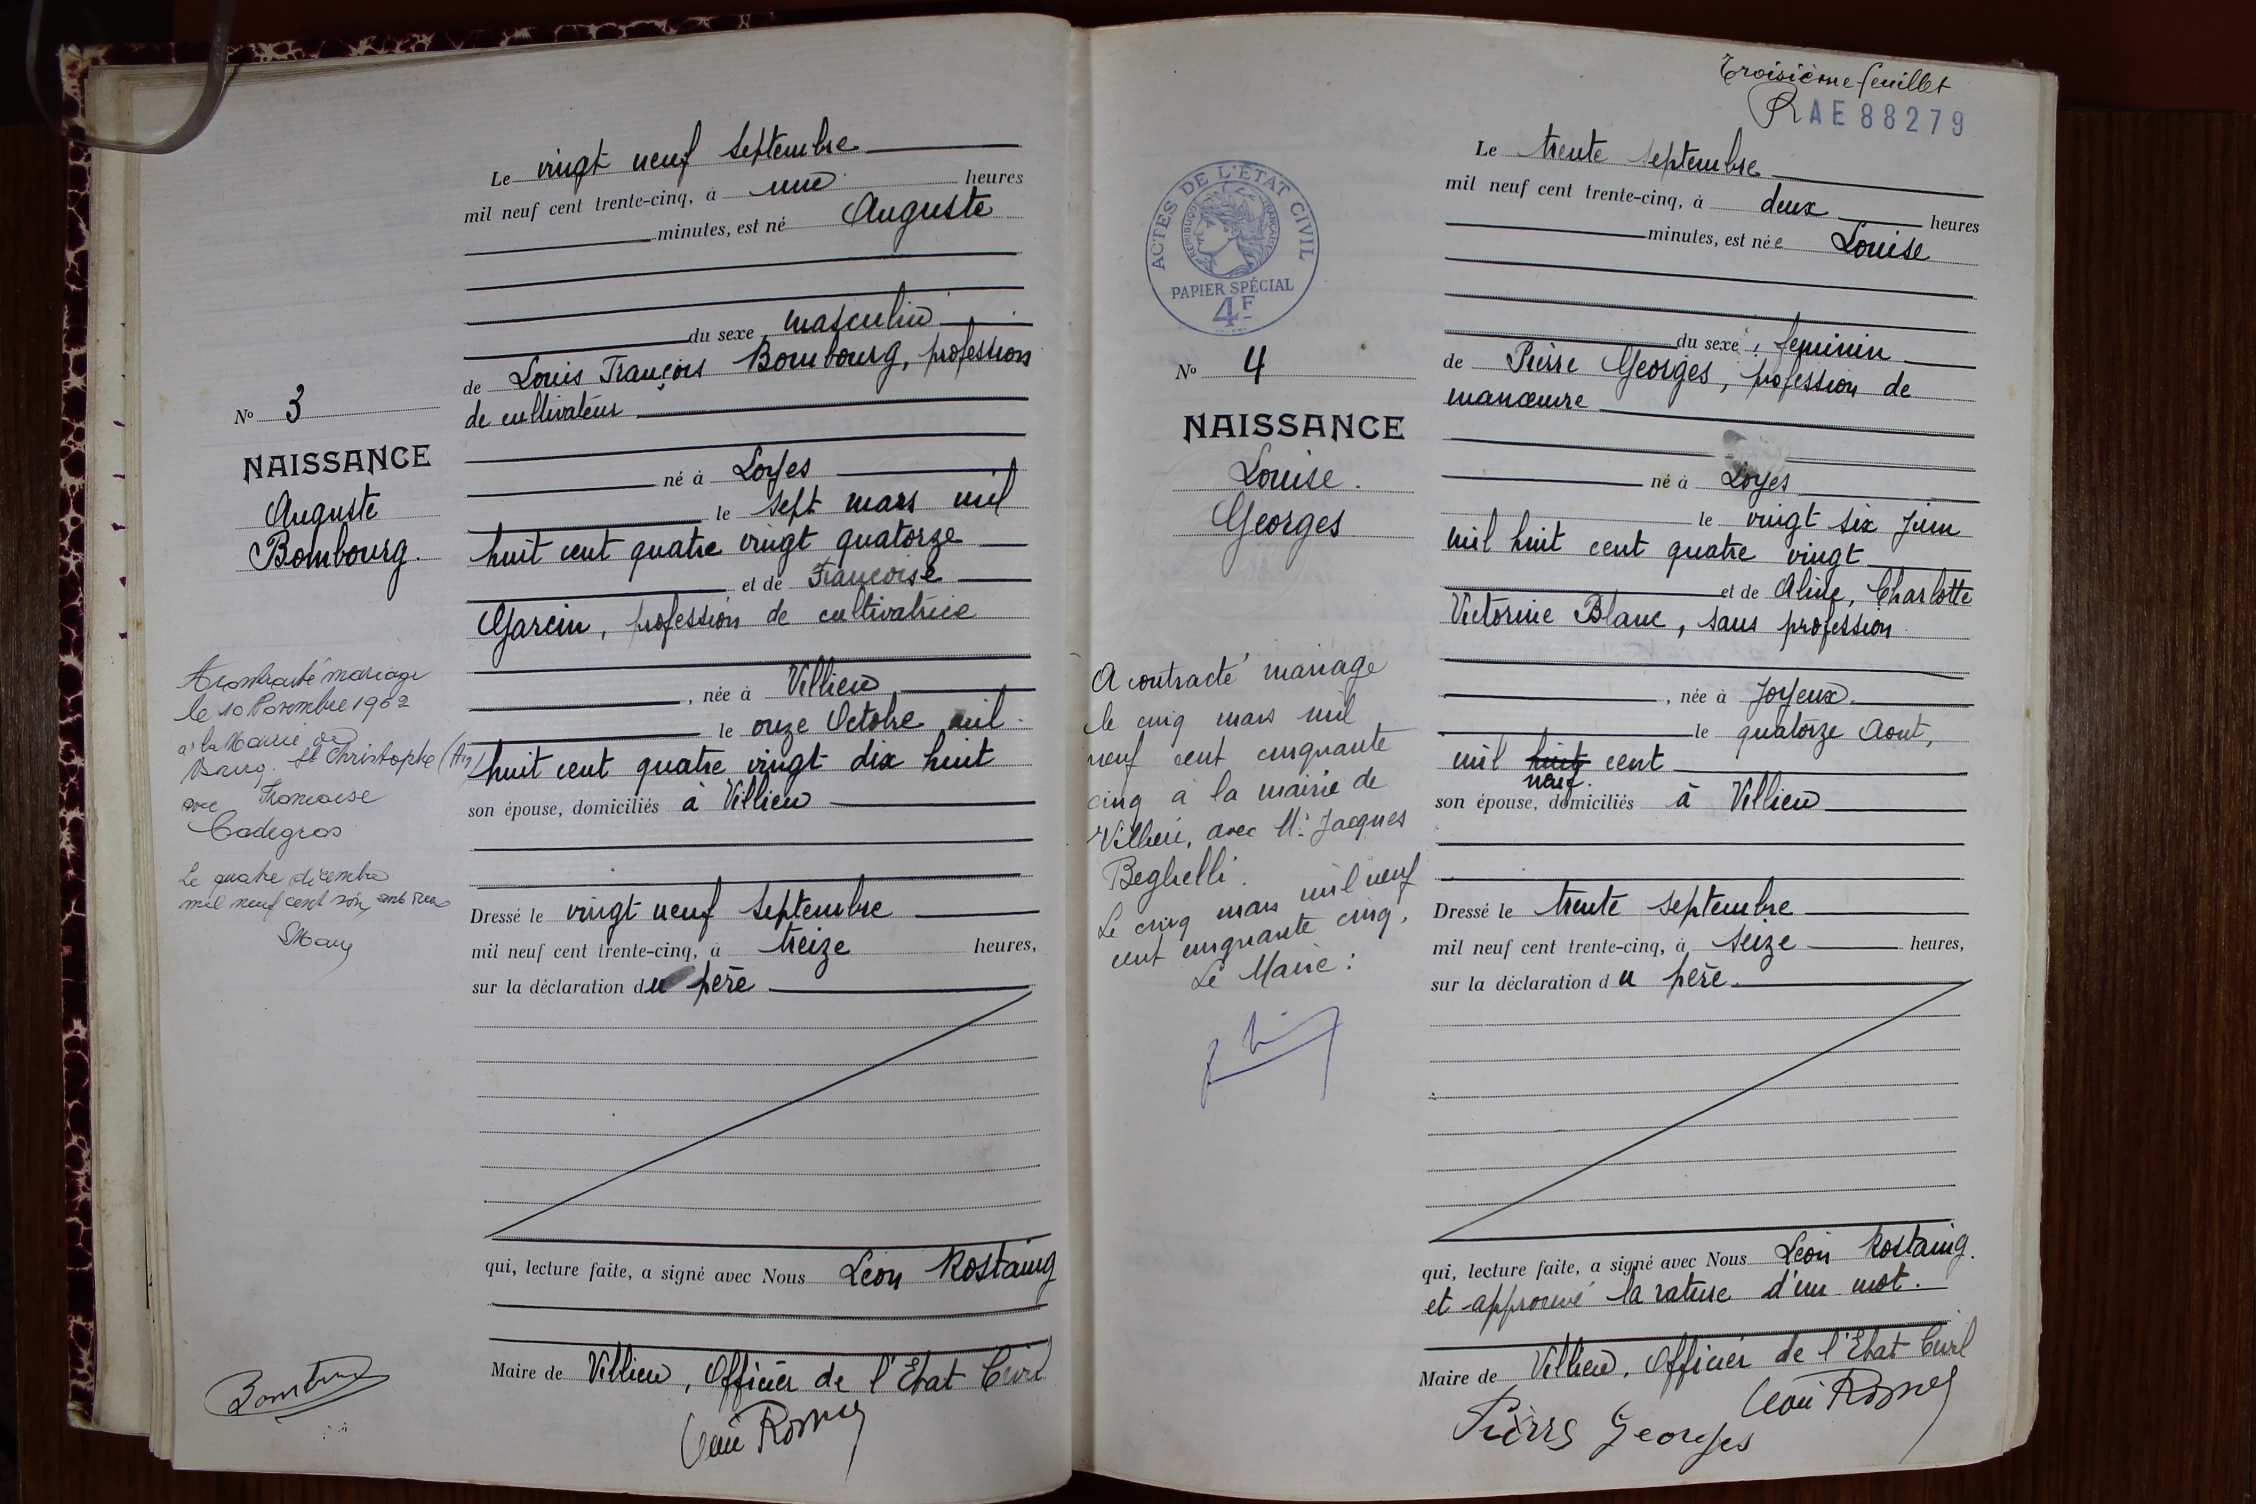 Le vingt neuf Septembre
mil neuf cent trente-cinq, à une heures
minutes, est né Auguste
du sexe masculin
de Louis François Bombourg, profession
de cultivateur
né à Loyes
le sept mars mil
huit cent quatre vingt quatorze
et de Françoise
Garcin, profession de cultivatrice
, née à Villieu
le onze Octobre mil
huit cent quatre vingt dix huit
son épouse, domiciliés à Villieu
Dressé le vingt neuf Septembre
mil neuf cent trente-cinq, à treize heures,
sur la déclaration du père
qui, lecture faite, a signé avec Nous Léon Rostaing
Maire de Villieu, Officier de l'Etat Civil
No 3
NAISSANCE
Auguste
Bombourg.
A contracté mariage
le 10 Novembre 1962
à la Mairie de
Bourg. St Christophe (Ain)
avec Francoise
Cadegros
Le quatre décembre
mil neuf cent
Troisième feuillet
AE 88279
Le trente septembre
mil neuf cent trente-cinq, à deux heures
minutes, est née Louise
du sexe féminin
de Pierre Georges, profession de
manœuvre
né à Loyes
le vingt six Juin
mil huit cent quatre vingt
et de Aline, Charlotte
Victorine Blanc, sans profession
, née à Joyeux.
le quatorze Aout,
mil huit cent
neuf.
son épouse, domiciliés à Villieu
Dressé le trente septembre
mil neuf cent trente-cinq, à seize heures,
sur la déclaration du père.
qui, lecture faite, a signé avec Nous Léon Rostaing.
et approuvé la rature d'un mot.
Maire de Villieu, Officier de l'Etat Civil
Pierre Georges
ACTES DE L'ÉTAT CIVIL
RÉPUBLIQUE FRANÇAISE
PAPIER SPÉCIAL
4F
No 4
NAISSANCE
Louise.
Georges
A contracté mariage
le cinq mars mil
neuf cent cinquante
cinq à la mairie de
Villieu, avec Mr. Jacques
Beghelli.
Le cinq mars mil neuf
cent cinquante cinq.
Le Maire :